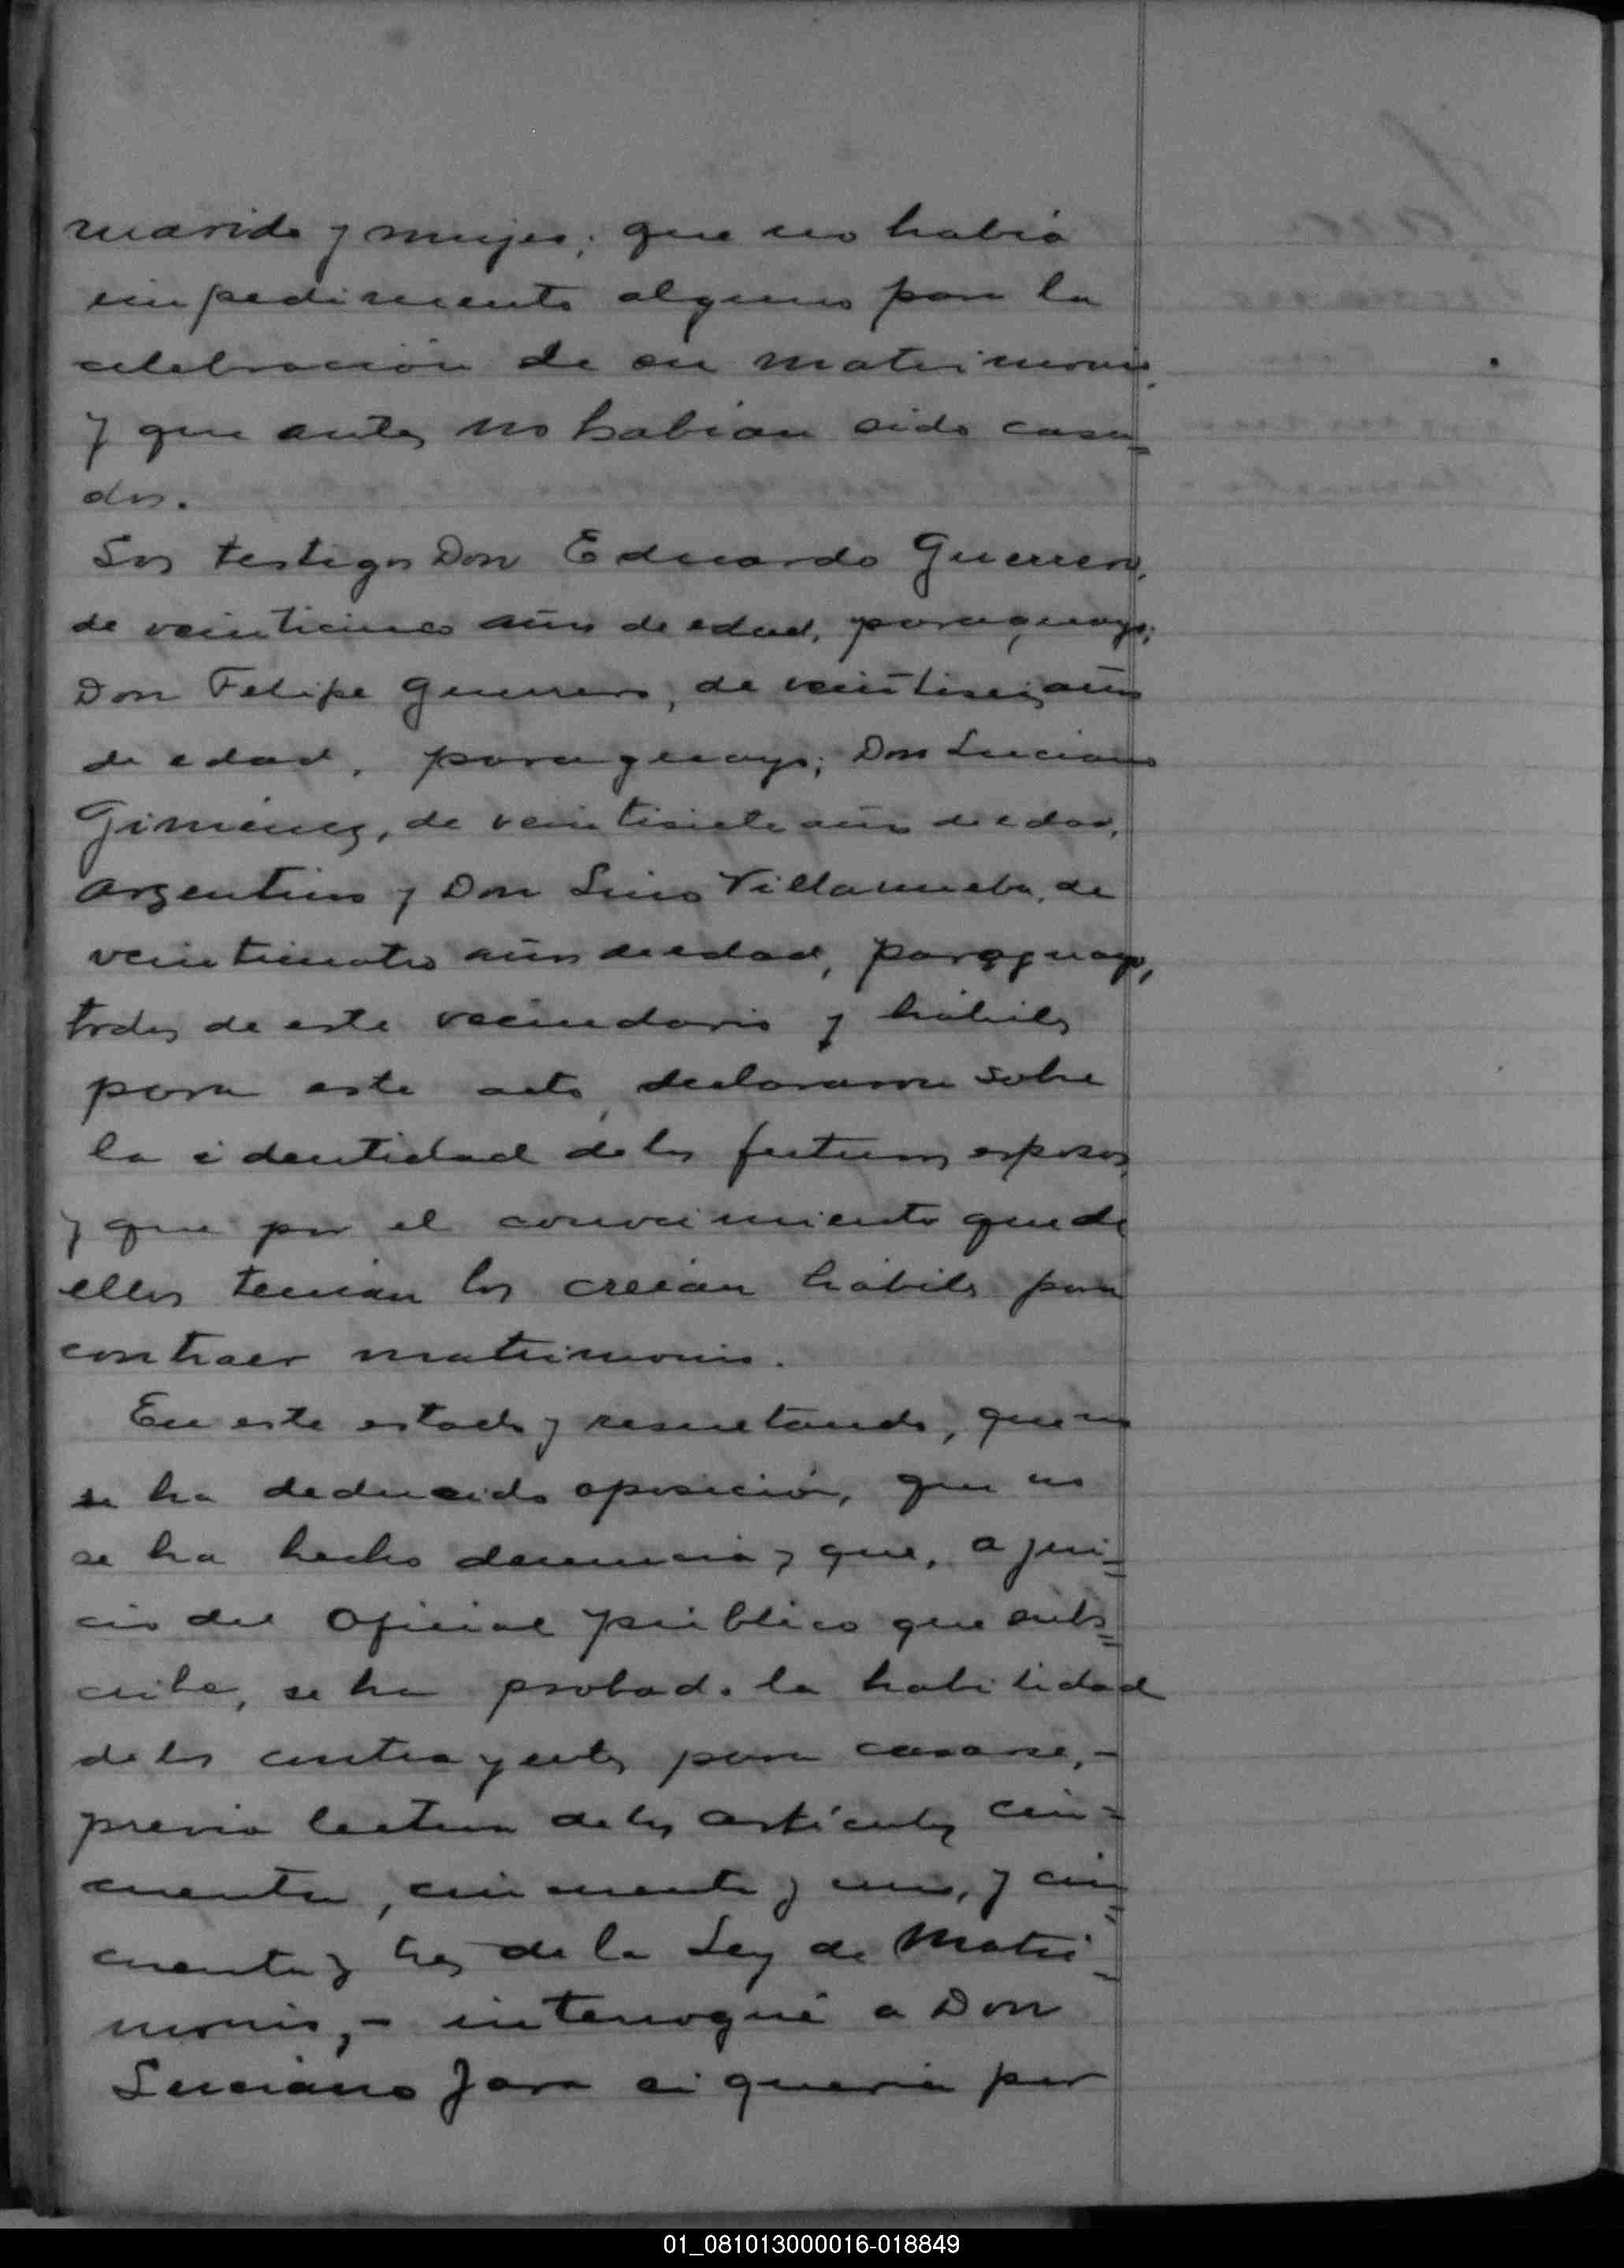 marido y mujer; que no había
impedimento alguno para la
celebración de su matrimonio,
y que antes no habían sido casa=
dos.
Los testigos Don Eduardo Guerrero,
de veinticinco años de edad, paraguayo;
Don Felipe Guerrero, de veintiseis años
de edad, paraguayo; Don Luciano
Giménez, de veintisiete años de edad,
argentino y Don Lino Villanueba, de
veinticuatro años de edad, paraguayo,
todos de este vecindario y hábiles
para este acto, declararon sobre
la identidad de los futuros esposos,
y que por el conocimiento que de
ellos tenían los creían hábiles para
contraer matrimonio.
En este estado y resultando, que no
se ha deducido oposición, que no
se ha hecho denuncia y que, a jui=
cio del Oficial público que subs=
cribe, se ha probado la habilidad
de los contrayentes para casarse,-
previa lectura de los artículos cin=
cuenta, cincuenta y uno, y cin=
cuenta y tres de la Ley de Matri-
monio,- interrogué a Don
Luciano Jara si quería por
01_081013000016-018849